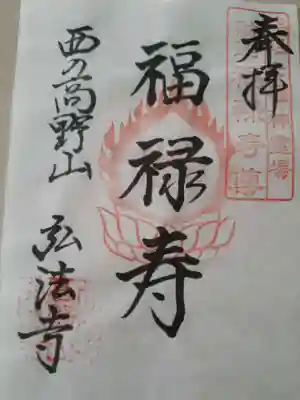 奉拝
福禄寿
西の高野山 弘法寺